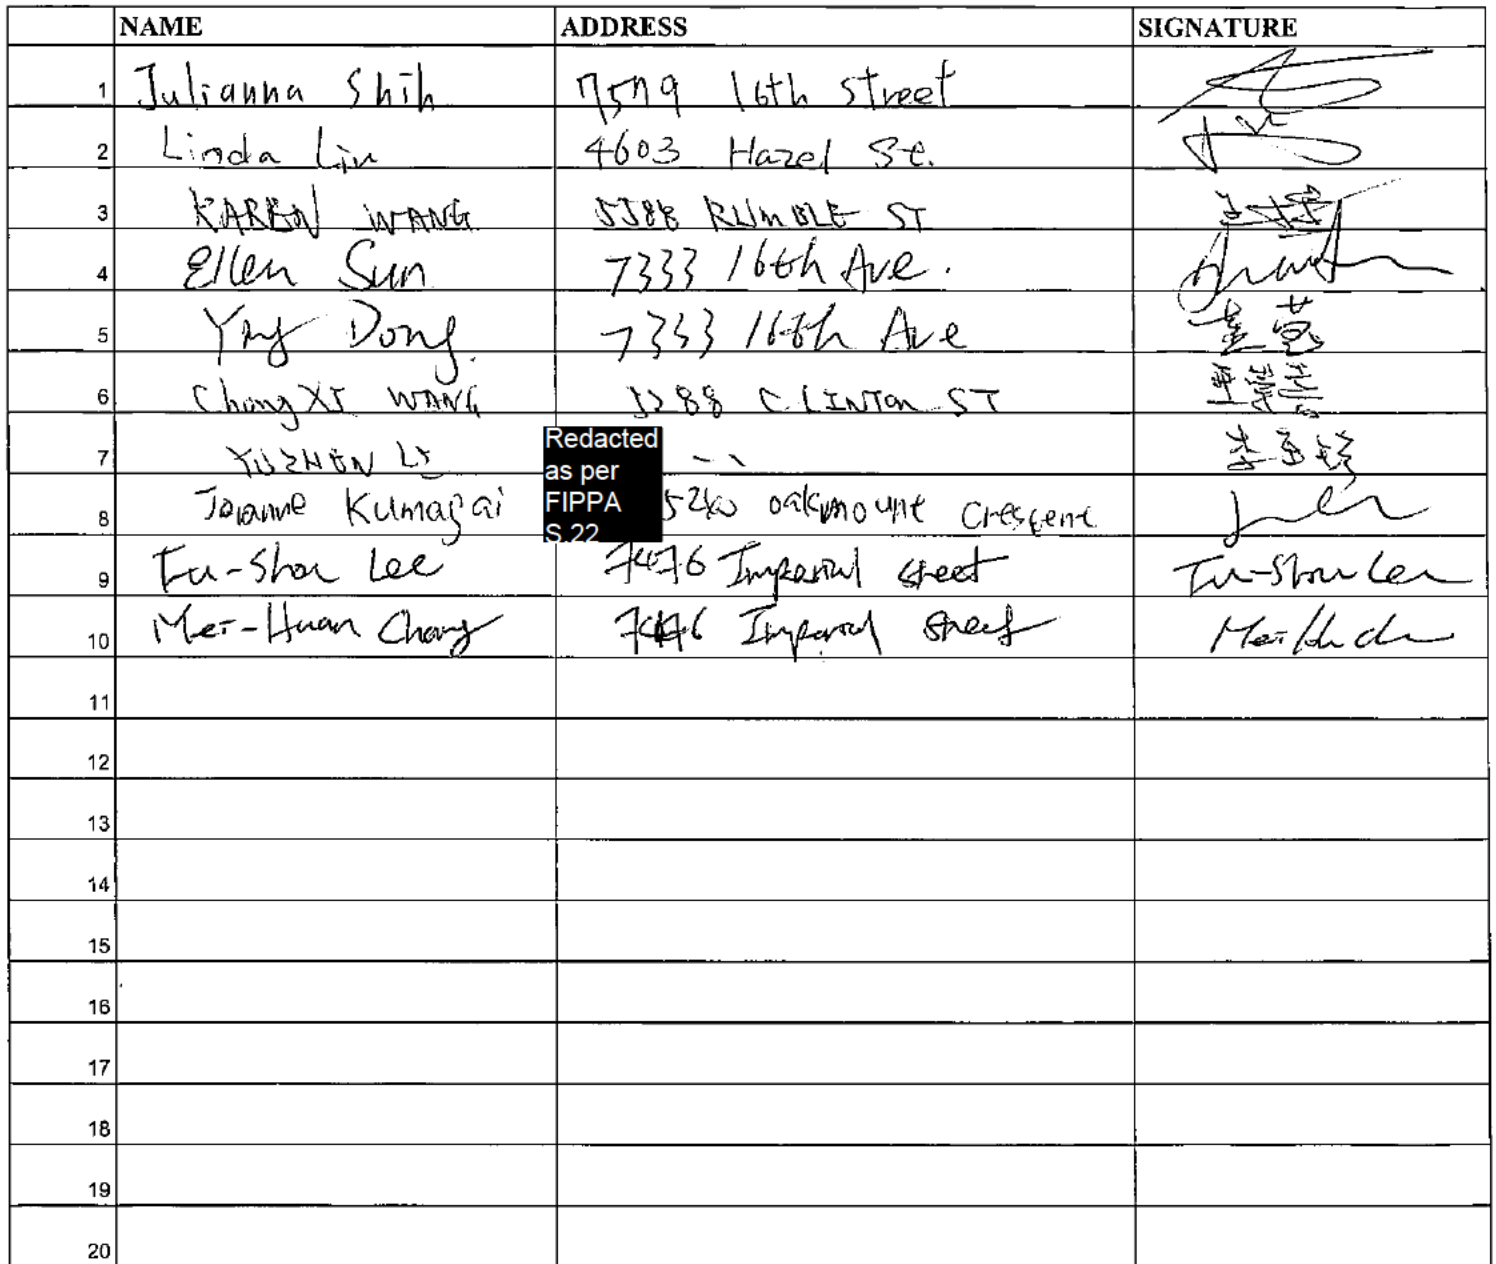 NAME ADDRESS SIGNATURE
1 Julianna Shih 7579 16th street
2 Linda Liu 4603 Hazel St.
3 KAREN WANG 5588 RUMBLE ST
4 Ellen Sun 7333 16th Ave.
5 Ying Dong 7333 16th Ave
6 WANG 5288 CLINTON ST
7 YUZHEN LI
Redacted
as per
FIPPA
S.22
8 Joanne Kumagai oakmount crescent
9 Fu-Shou Lee 7476 Imperial street Fu-Shou Lee
10 Mei-Huan Chang 7476 Imperial street
11
12
13
14
15
16
17
18
19
20